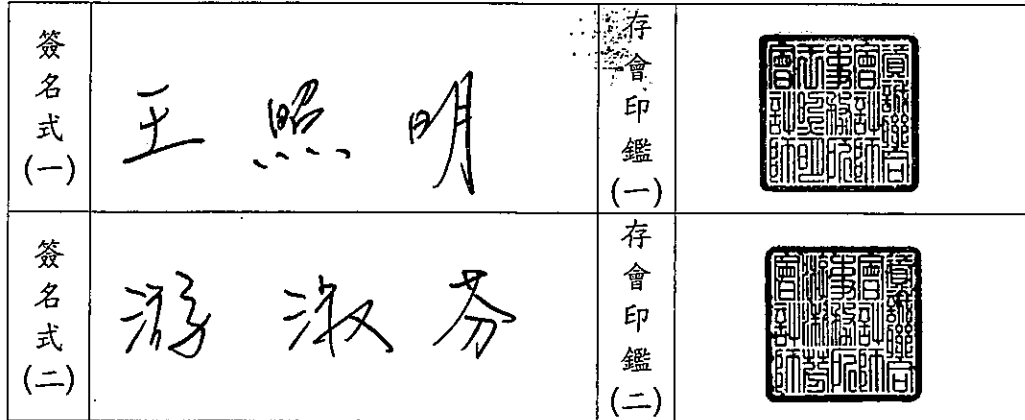 簽名式(一) 王照明 存會印鑑(一) 資誠聯合會計師事務所王照明會計師
簽名式(二) 游淑芬 存會印鑑(二) 資誠聯合會計師事務所游淑芬會計師